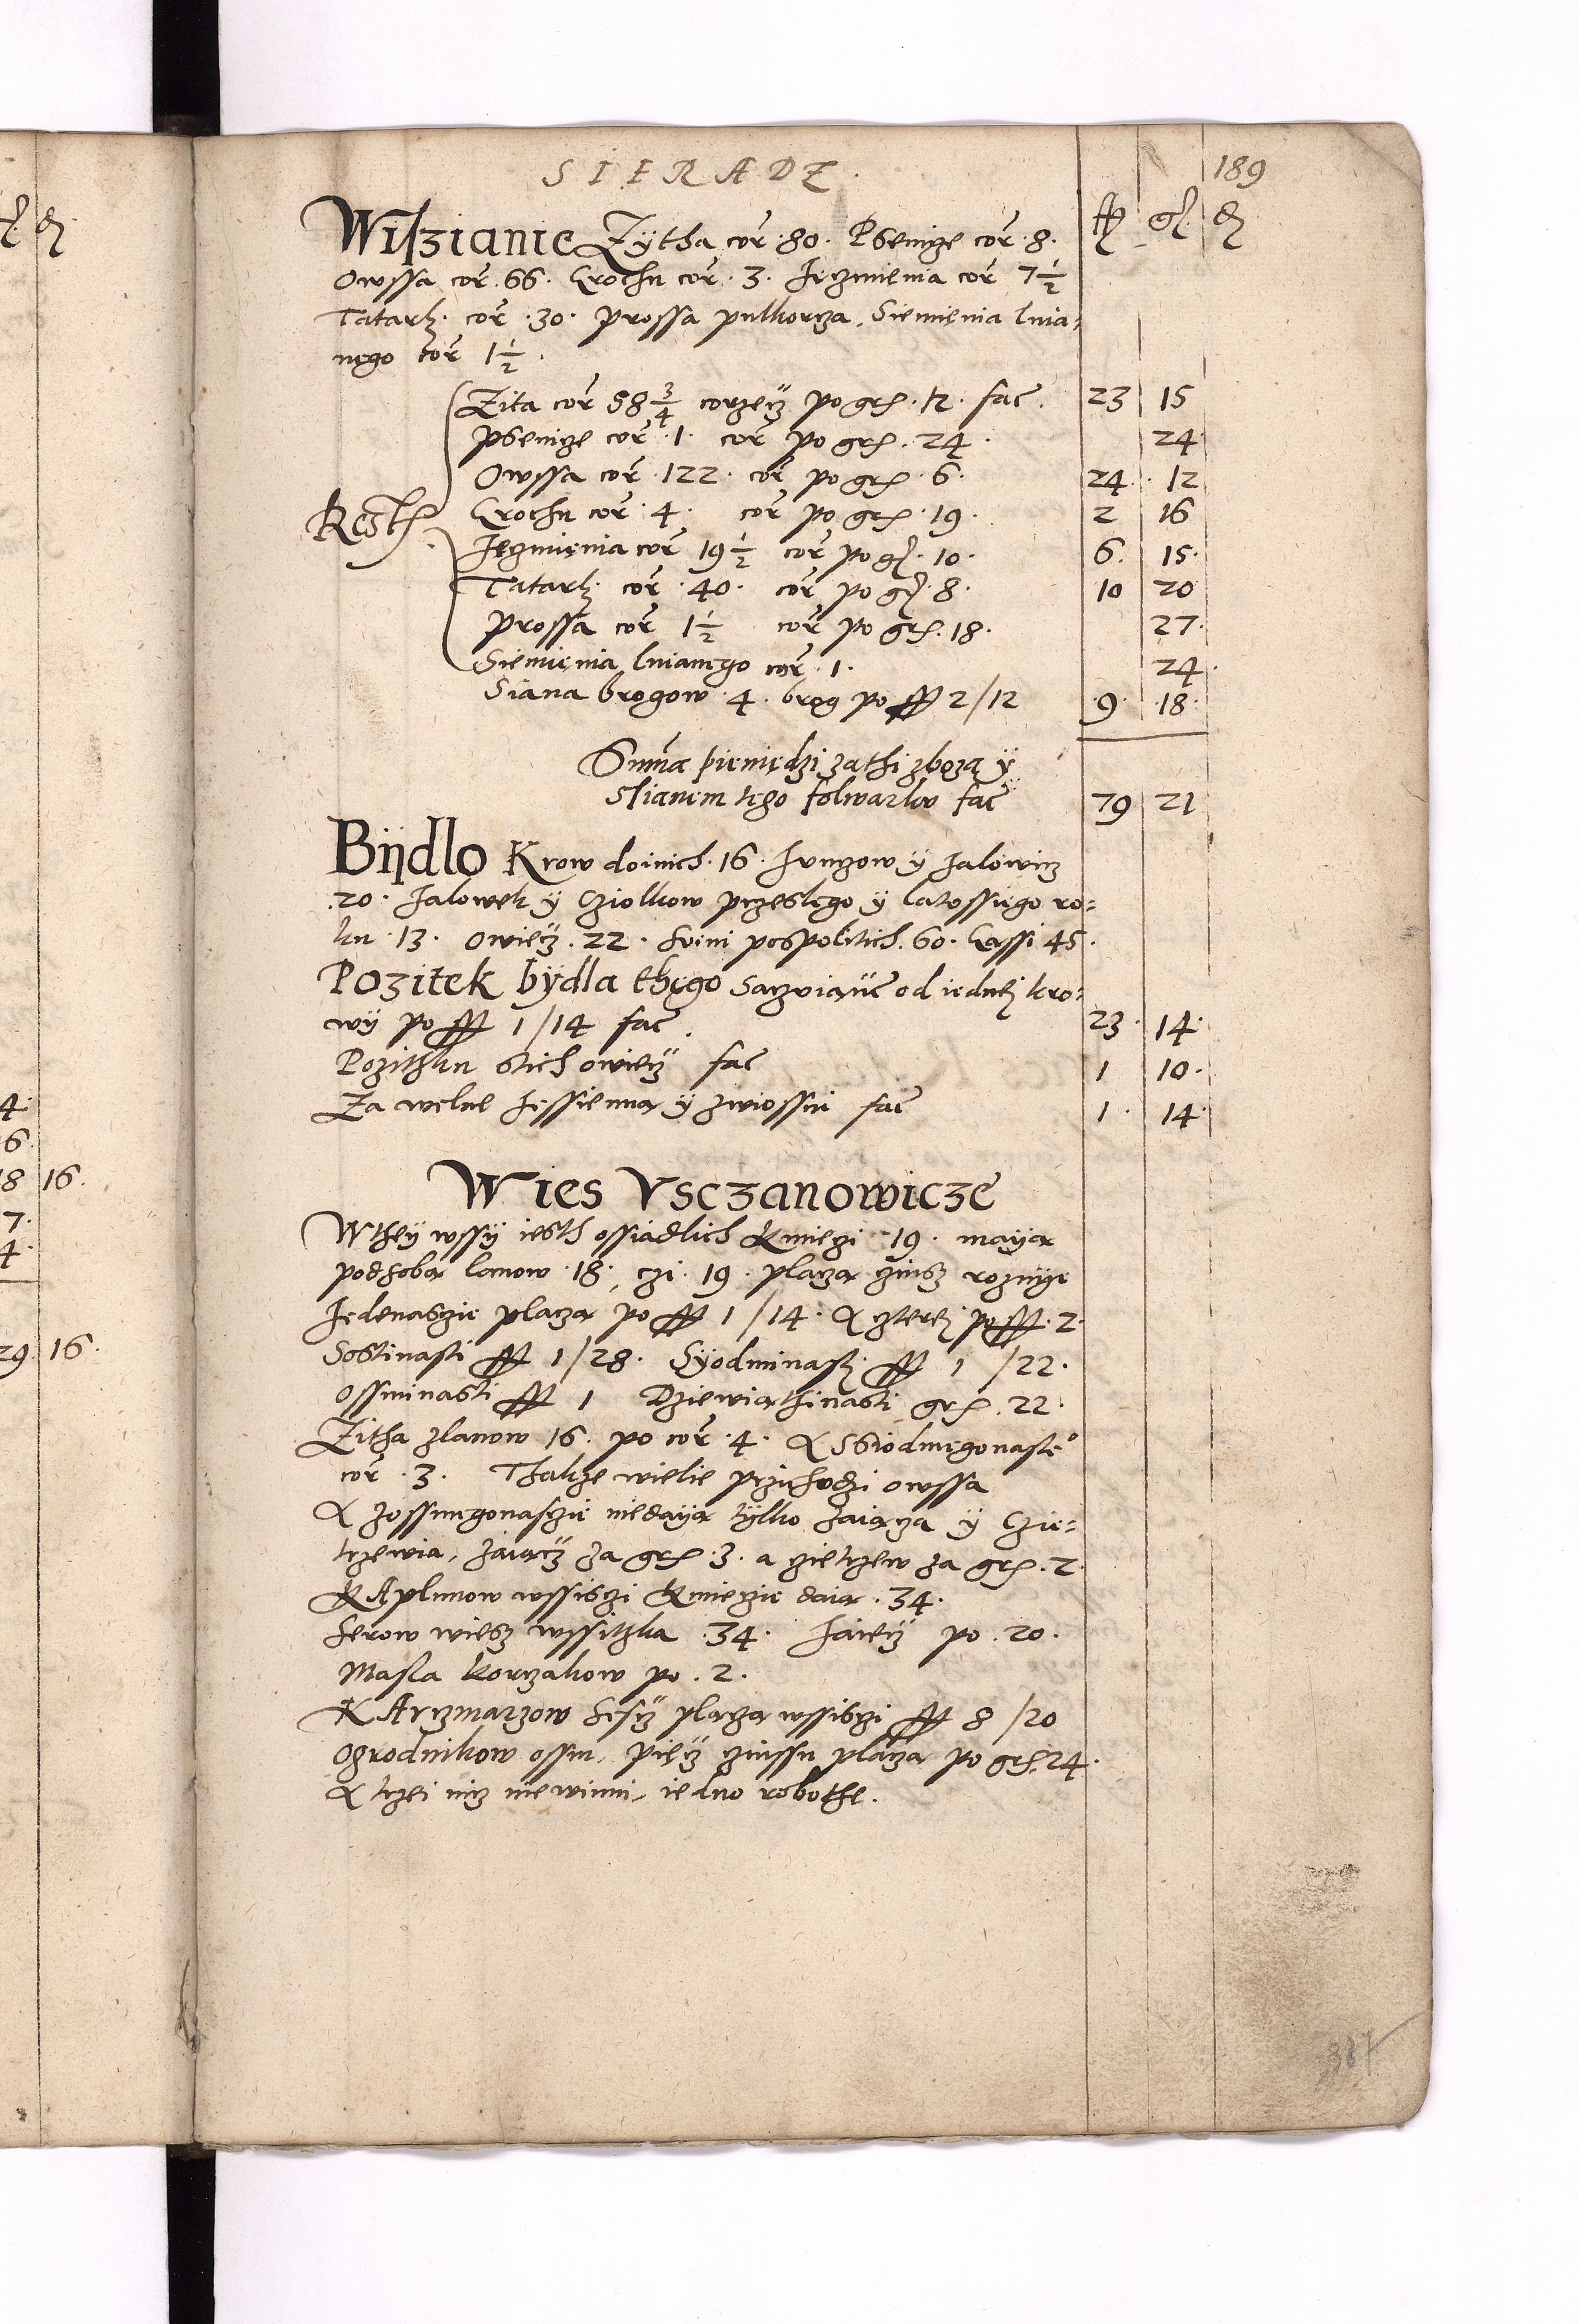 SIERADZ
189
fl gr d
Wiszianie Zÿtha cor 80. Psenicze cor 8.
Owssa cor 66. Grochu cor 3. Jęczmienia cor 7 1/2
Tatark: cor 30. Prossa pulkorcza, Siemięnia lnia=
nego cor 1 1/2.
Zita cor 58 3/4 corzecz po grs 12. fac. 23 15
Psenicze cor 1. cor po grs 24. 24
Owssa cor 122. cor po grs 6. 24 12
Resth
Grochu cor 4. cor po grs 19. 2 16
Jęczmięnia cor 19 1/2 cor po gr 10. 6. 15.
Tatark: cor 40. cor po gr 8. 10 20
Prossa cor 1 1/2 cor po grs 18. 27.
Siemięnia lnianego cor 1. 24.
Siana brogow 4. brog po fl 2/12 9. 18.
Summa pieniędzi za thi zboza ÿ
sianem tego folwarku fac 79 21
Bÿdlo Krow doinich 16. Junczow ÿ Jalowicz
20. Jalowek ÿ Cziolkow przeslego ÿ latossiego ro=
ku 13. Owiecz 22. Swini pospolitich 60. Gassi 45.
Pozitek bÿdla thego Saczuiącz od iednej kro=
wÿ po fl 1/14 fac. 23. 14.
Pozithku stich owiecz fac 1 10.
Za welne Jessienna ÿ zwiossni fac 1. 14.
Wies Vsczanowicze
W theÿ wssÿ iesth ossiadlich Kmieczi 19. maÿa
pod soba lanow 18, czi 19. placza czinsz roznÿe
Jedenascie placza po fl 1/14. A cztereÿ po fl 2.
Sostinasti fl 1/28. Syodminasti fl 1/22.
Ossminasti fl 1 Dziewiathinasti grs 22.
Zitha zlanow 16. po cor 4. A Sbiodmęgonaste°
cor 3. Thakze wielie przichodzi owssa
A zossmegonasczie niedaÿa tÿlko Zaiacza ÿ Czie=
trzewia, Zaiącz za grs 3. a cietrzew za grs 2.
KApłunow wssisczi Kmieczie daia 34.
Serow wiesz wssitzka 34. Jaiecz po 20.
Masla korczakow po 2.
KArczmarzow sesÿcz placza wssisczi fl 8/20
Ogrodnikow ossm, pięcz czinssu placza po grs 24.
A trzei nicz niewinni, iedno robothe.
387